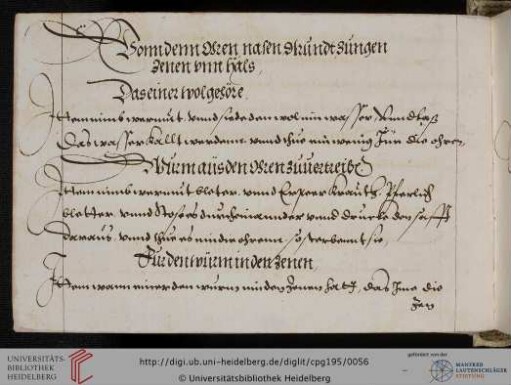 Vonn denn Oren nasen Mundt Zungen
Zenen vnn hals,
Das einer wol gehöre,
Item nimb warmut vnnd siede den wol inn wasser, vnnd laß
das wasser kallt werdenn vnnd thue ein wenig Inn die ohren
Würm aus den Oren zuuertreiben
Item nimb wermut bleter vnnd kreuth, Pfersich
bletter vnnd stoses durcheinannder vnnd drucke den safft
daraus vnnd thue es inn die ohrenn so sterbennt sie,
Fur den würm in den Zenen,
Item wann einer den wurm inn den Zenen hat, das Ime die
Zen
UNIVERSITÄTS-
BIBLIOTHEK
HEIDELBERG
http://digi.ub.uni-heidelberg.de/diglit/cpg195/0056
© Universitätsbibliothek Heidelberg
gefördert von der
MANFRED
LAUTENSCHLÄGER
STIFTUNG